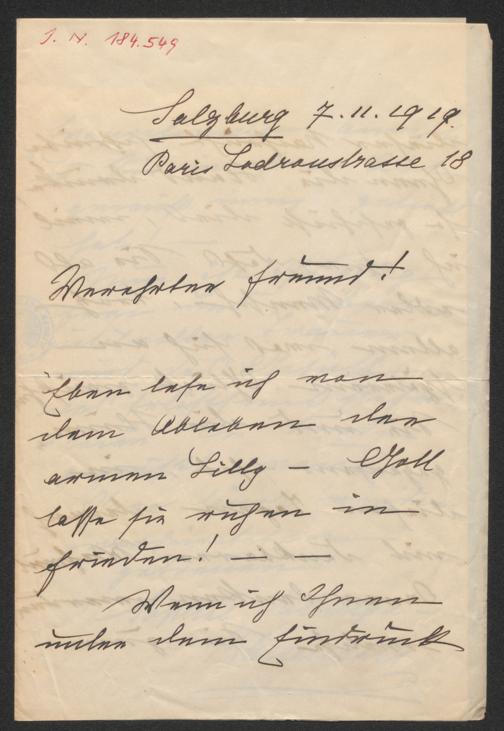 J. N. 184.549
Salzburg 7.11.1919.
Paris Lodronstrasse 18
Verehrter Freund!
Eben lese ich von
dem Ableben der
armen Lilly – Gott
lasse sie ruhen in
Frieden! – –
Wenn ich Ihnen
unter dem Eindruck